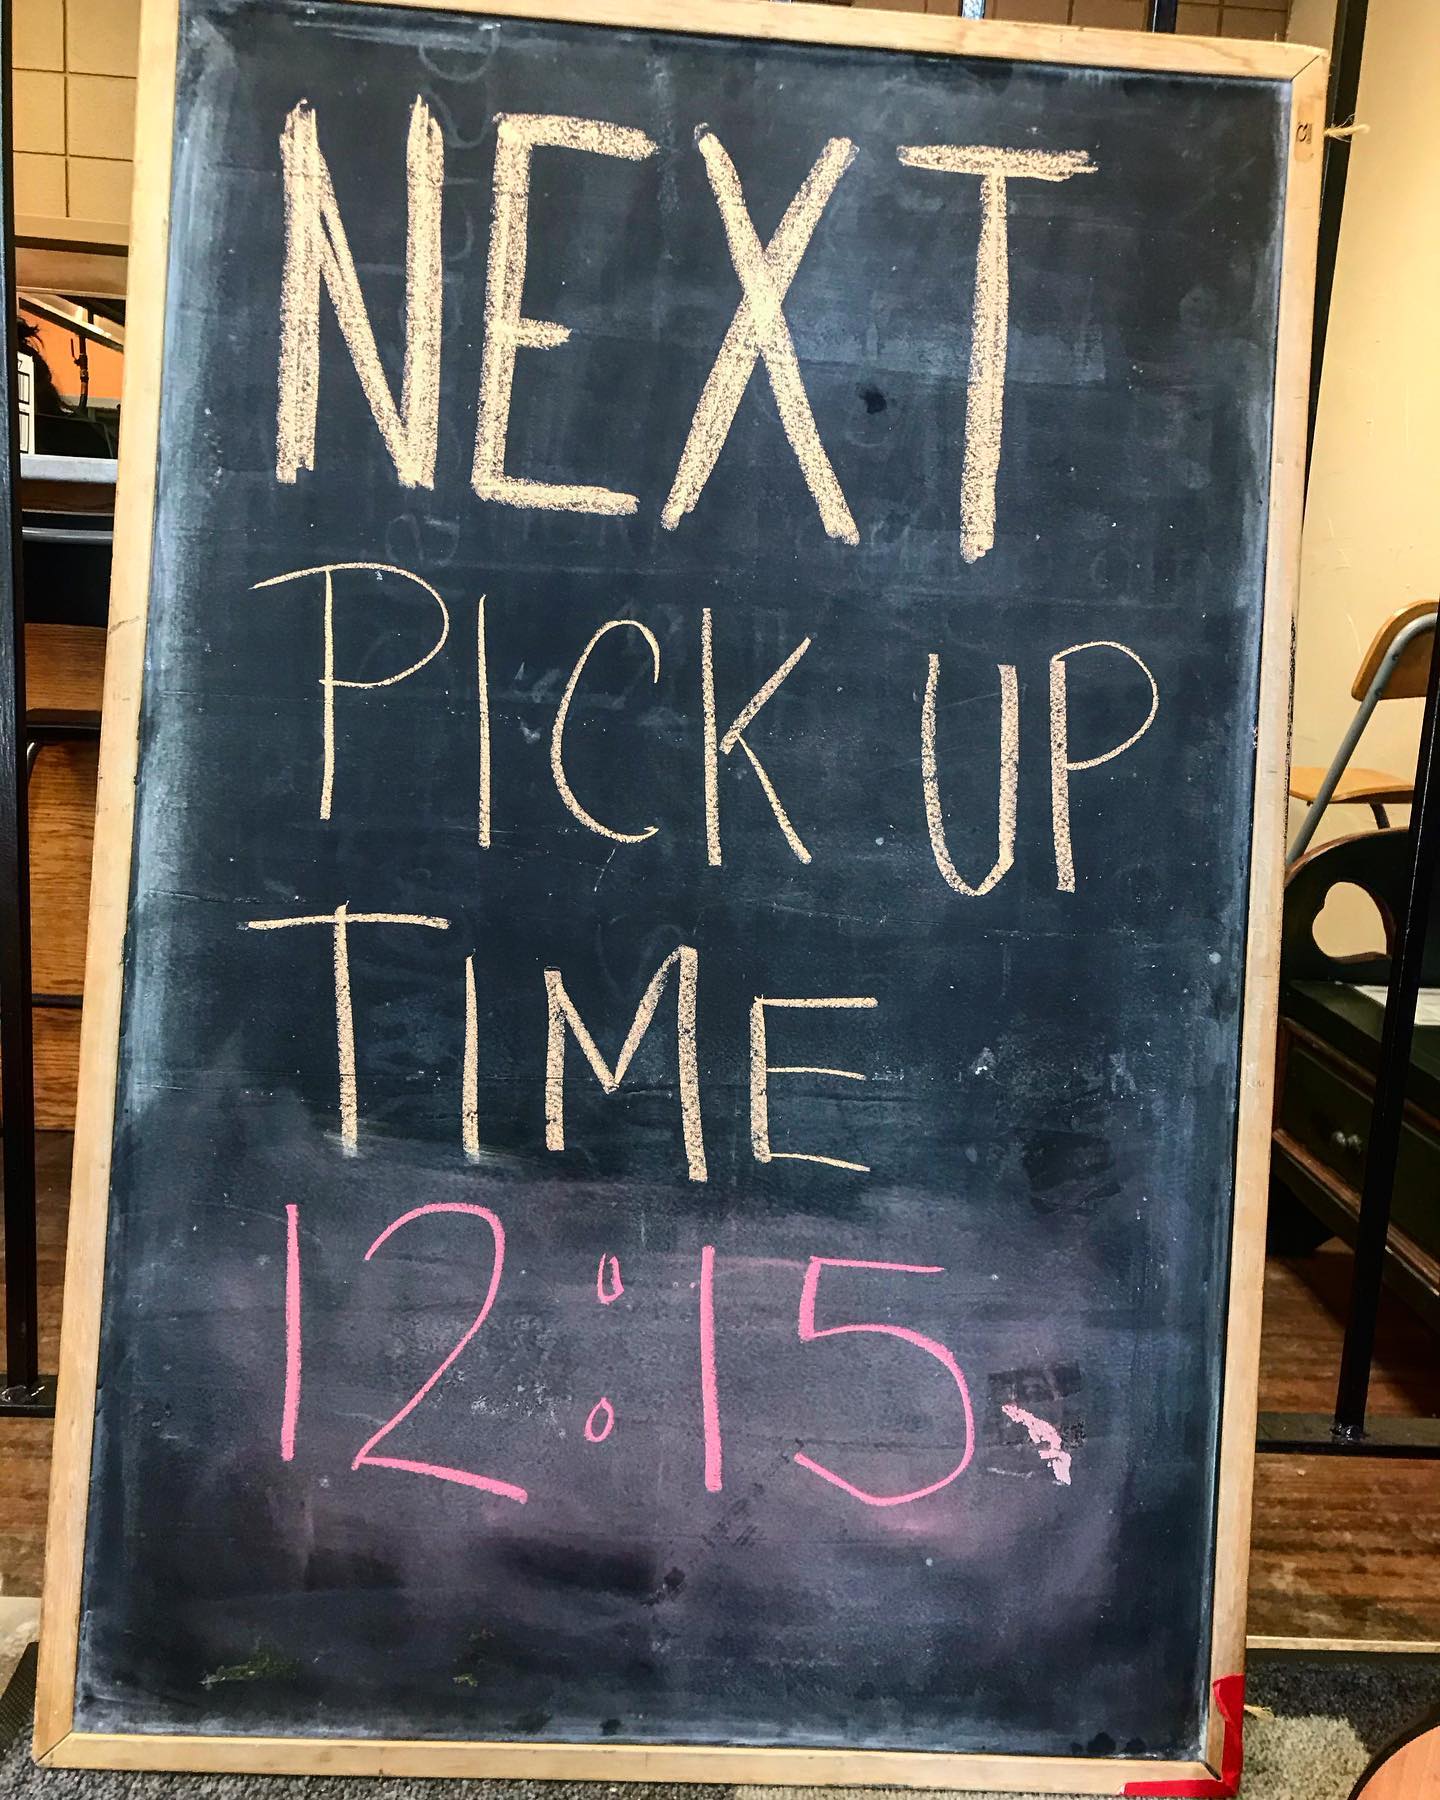 NEXT
PICK UP
TIME
12:15